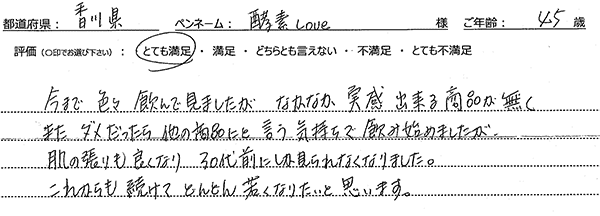 都道府県： 香川県 ペンネーム： 酵素Love 様 ご年齢： 45 歳
評価（○印でお選び下さい）： とても満足 ・ 満足 ・ どちらとも言えない ・ 不満足 ・ とても不満足
今まで 色々 飲んで見ましたが なかなか 実感 出来る商品が無く
また ダメだったら 他の商品にと 言う 気持ちで 飲み始めましたが、
肌の張りも良くなり 30代前にしか見られなくなりました。
これからも 続けて どんどん 若くなりたいと 思います。